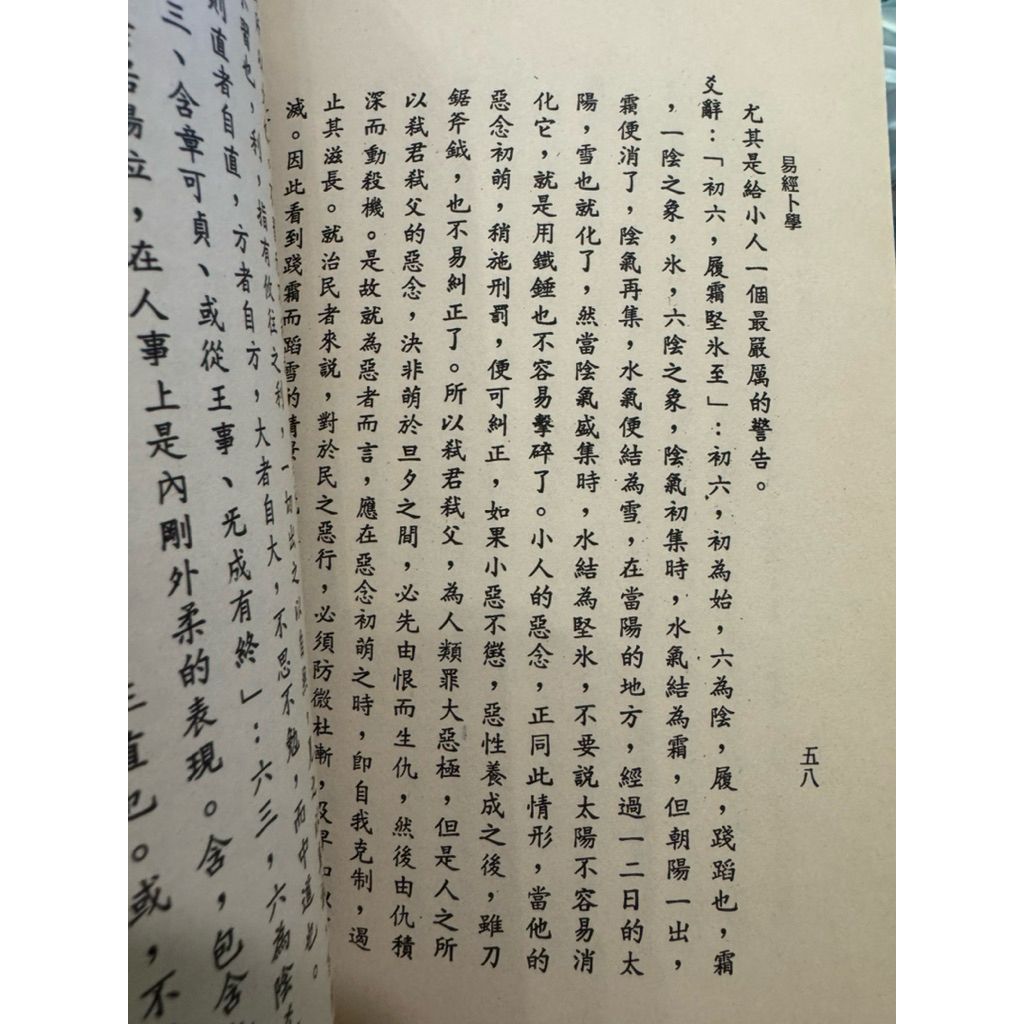 易經卜學
五八
尤其是給小人一個最嚴厲的警告。
爻辭：「初六，履霜堅氷至」：初六，初為始，六為陰，履，踐蹈也，霜
，一陰之象，氷，六陰之象，陰氣初集時，水氣結為霜，但朝陽一出，
霜便消了，陰氣再集，水氣便結為雪，在當陽的地方，經過一二日的太
陽，雪也就化了，然當陰氣盛集時，水結為堅氷，不要説太陽不容易消
化它，就是用鐵錘也不容易擊碎了。小人的惡念，正同此情形，當他的
惡念初萌，稍施刑罰，便可糾正，如果小惡不懲，惡性養成之後，雖刀
鋸斧鉞，也不易糾正了。所以弒君弒父，為人類罪大惡極，但是人之所
以弒君弒父的惡念，決非萌於旦夕之間，必先由恨而生仇，然後由仇積
深而動殺機。是故就為惡者而言，應在惡念初萌之時，即自我克制，遏
止其滋長。就治民者來説，對於民之惡行，必須防微杜漸，
滅。因此看到踐霜而蹈雪的情
習也，利，指有攸往之利，一切出之以自
則直者自直，方者自方，大者自大，不思不勉，而中道也。
三、含章可貞、或從王事、旡成有終」：六三，六為陰
陽位，在人事上是內剛外柔的表現。含，包含
三直也。或，不